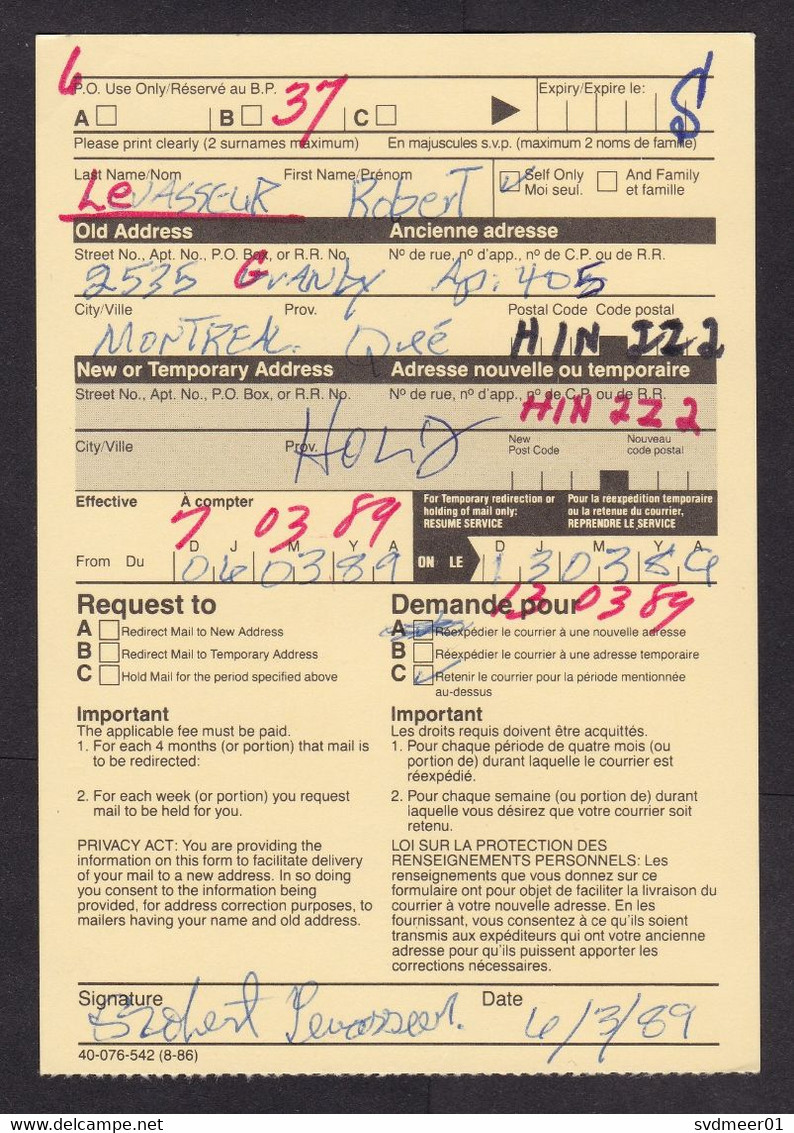 6
P.O. Use Only/Réservé au B.P. Expiry/Expire le:
A B 37 C
Please print clearly (2 surnames maximum) En majuscules s.v.p. (maximum 2 noms de famille)
Last Name/Nom First Name/Prénom Self Only Moi seul. And Family et famille
LeVASSEUR Robert
Old Address Ancienne adresse
Street No., Apt. No., P.O. Box, or R.R. No. Nº de rue, nº d'app., nº de C.P. ou de R.R.
2535 GrANby Ap: 405
City/Ville Prov. Postal Code Code postal
MONTREAL. Qué H1N 2Z2
New or Temporary Address Adresse nouvelle ou temporaire
Street No., Apt. No., P.O. Box, or R.R. No. Nº de rue, nº d'app., nº de C.P. ou de R.R.
H1N 2Z2
HOLD
City/Ville Prov. New Post Code Nouveau code postal
Effective À compter
7 03 89
For Temporary redirection or holding of mail only: RESUME SERVICE
Pour la réexpédition temporaire ou la retenue du courrier, REPRENDRE LE SERVICE
D J M Y A D J M Y A
From Du 060389 ON LE 130389
13 03 89
Request to Demande pour
A Redirect Mail to New Address A Réexpédier le courrier à une nouvelle adresse
B Redirect Mail to Temporary Address B Réexpédier le courrier à une adresse temporaire
C Hold Mail for the period specified above C Retenir le courrier pour la période mentionnée
au-dessus
Important
The applicable fee must be paid.
1. For each 4 months (or portion) that mail is
to be redirected:
2. For each week (or portion) you request
mail to be held for you.
PRIVACY ACT: You are providing the
information on this form to facilitate delivery
of your mail to a new address. In so doing
you consent to the information being
provided, for address correction purposes, to
mailers having your name and old address.
Important
Les droits requis doivent être acquittés.
1. Pour chaque période de quatre mois (ou
portion de) durant laquelle le courrier est
réexpédié.
2. Pour chaque semaine (ou portion de) durant
laquelle vous désirez que votre courrier soit
retenu.
LOI SUR LA PROTECTION DES
RENSEIGNEMENTS PERSONNELS: Les
renseignements que vous donnez sur ce
formulaire ont pour objet de faciliter la livraison du
courrier à votre nouvelle adresse. En les
fournissant, vous consentez à ce qu'ils soient
transmis aux expéditeurs qui ont votre ancienne
adresse pour qu'ils puissent apporter les
corrections nécessaires.
Signature Date
Robert Levasseur. 6/3/89
40-076-542 (8-86)
delcampe.net svdmeer01